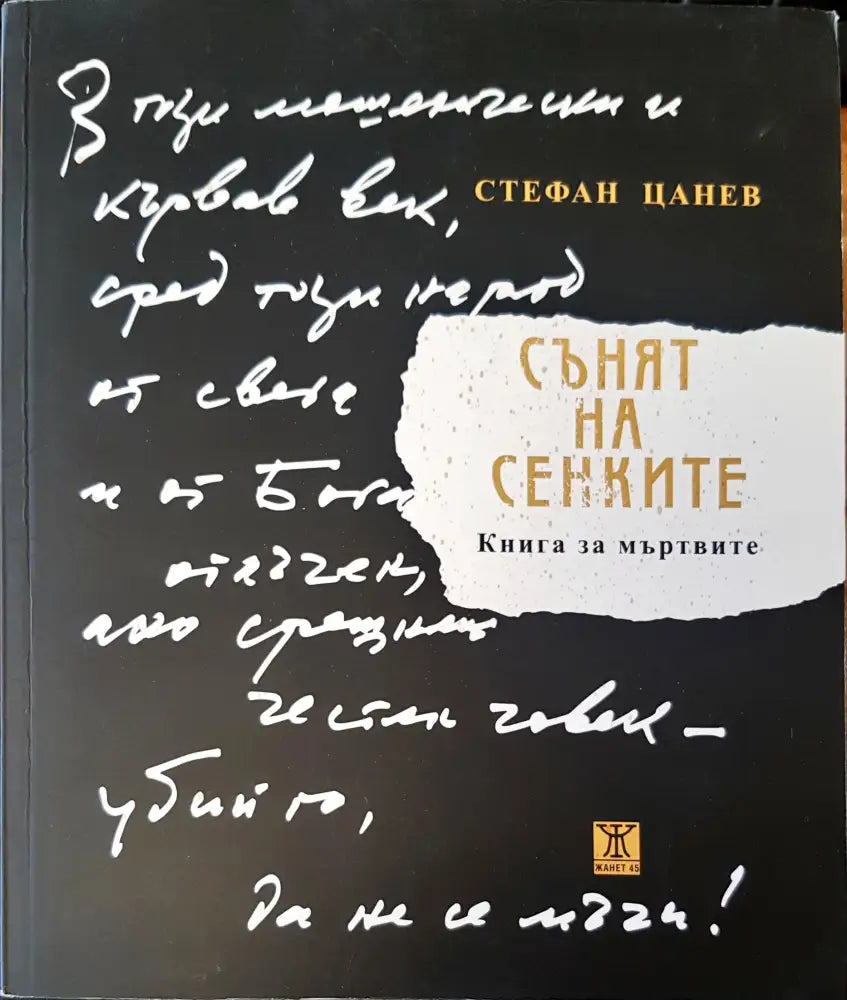 В този мошенически и
кървав век,
СТЕФАН ЦАНЕВ
сред този народ
от света
СЪНЯТ
НА
СЕНКИТЕ
и от Бога
Книга за мъртвите
отлъчен,
ако срещнеш
честен човек –
убий го,
ЖАНЕТ 45
да не се мъчи!